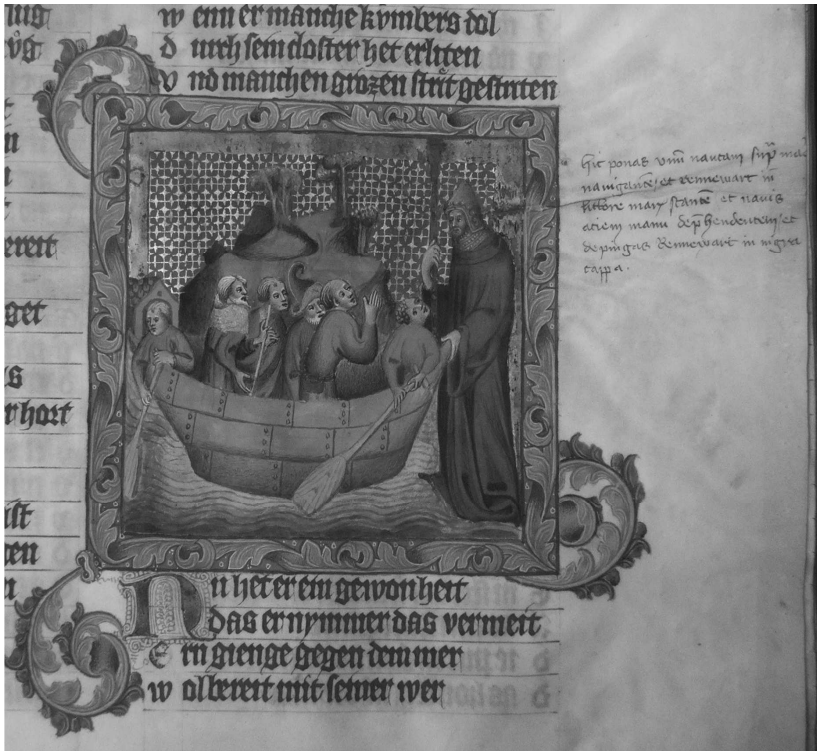 w enn er manche kvmbers dol
d urch sein closter het erliten
v nd manchen grozen strit gestriten
ereit
get
is
r hort
ist
ten
Hic ponas vnū nautam
navigantē et rennewart in
littore marꝭ stantē et navis
aciem manu dep̄hendentem et
depingas Rennewart in nigra
cappa.
N u het er ein gewonheit
das er nymmer das vermeit
E rn gienge gegen dem mer
w ol bereit mit seiner wer